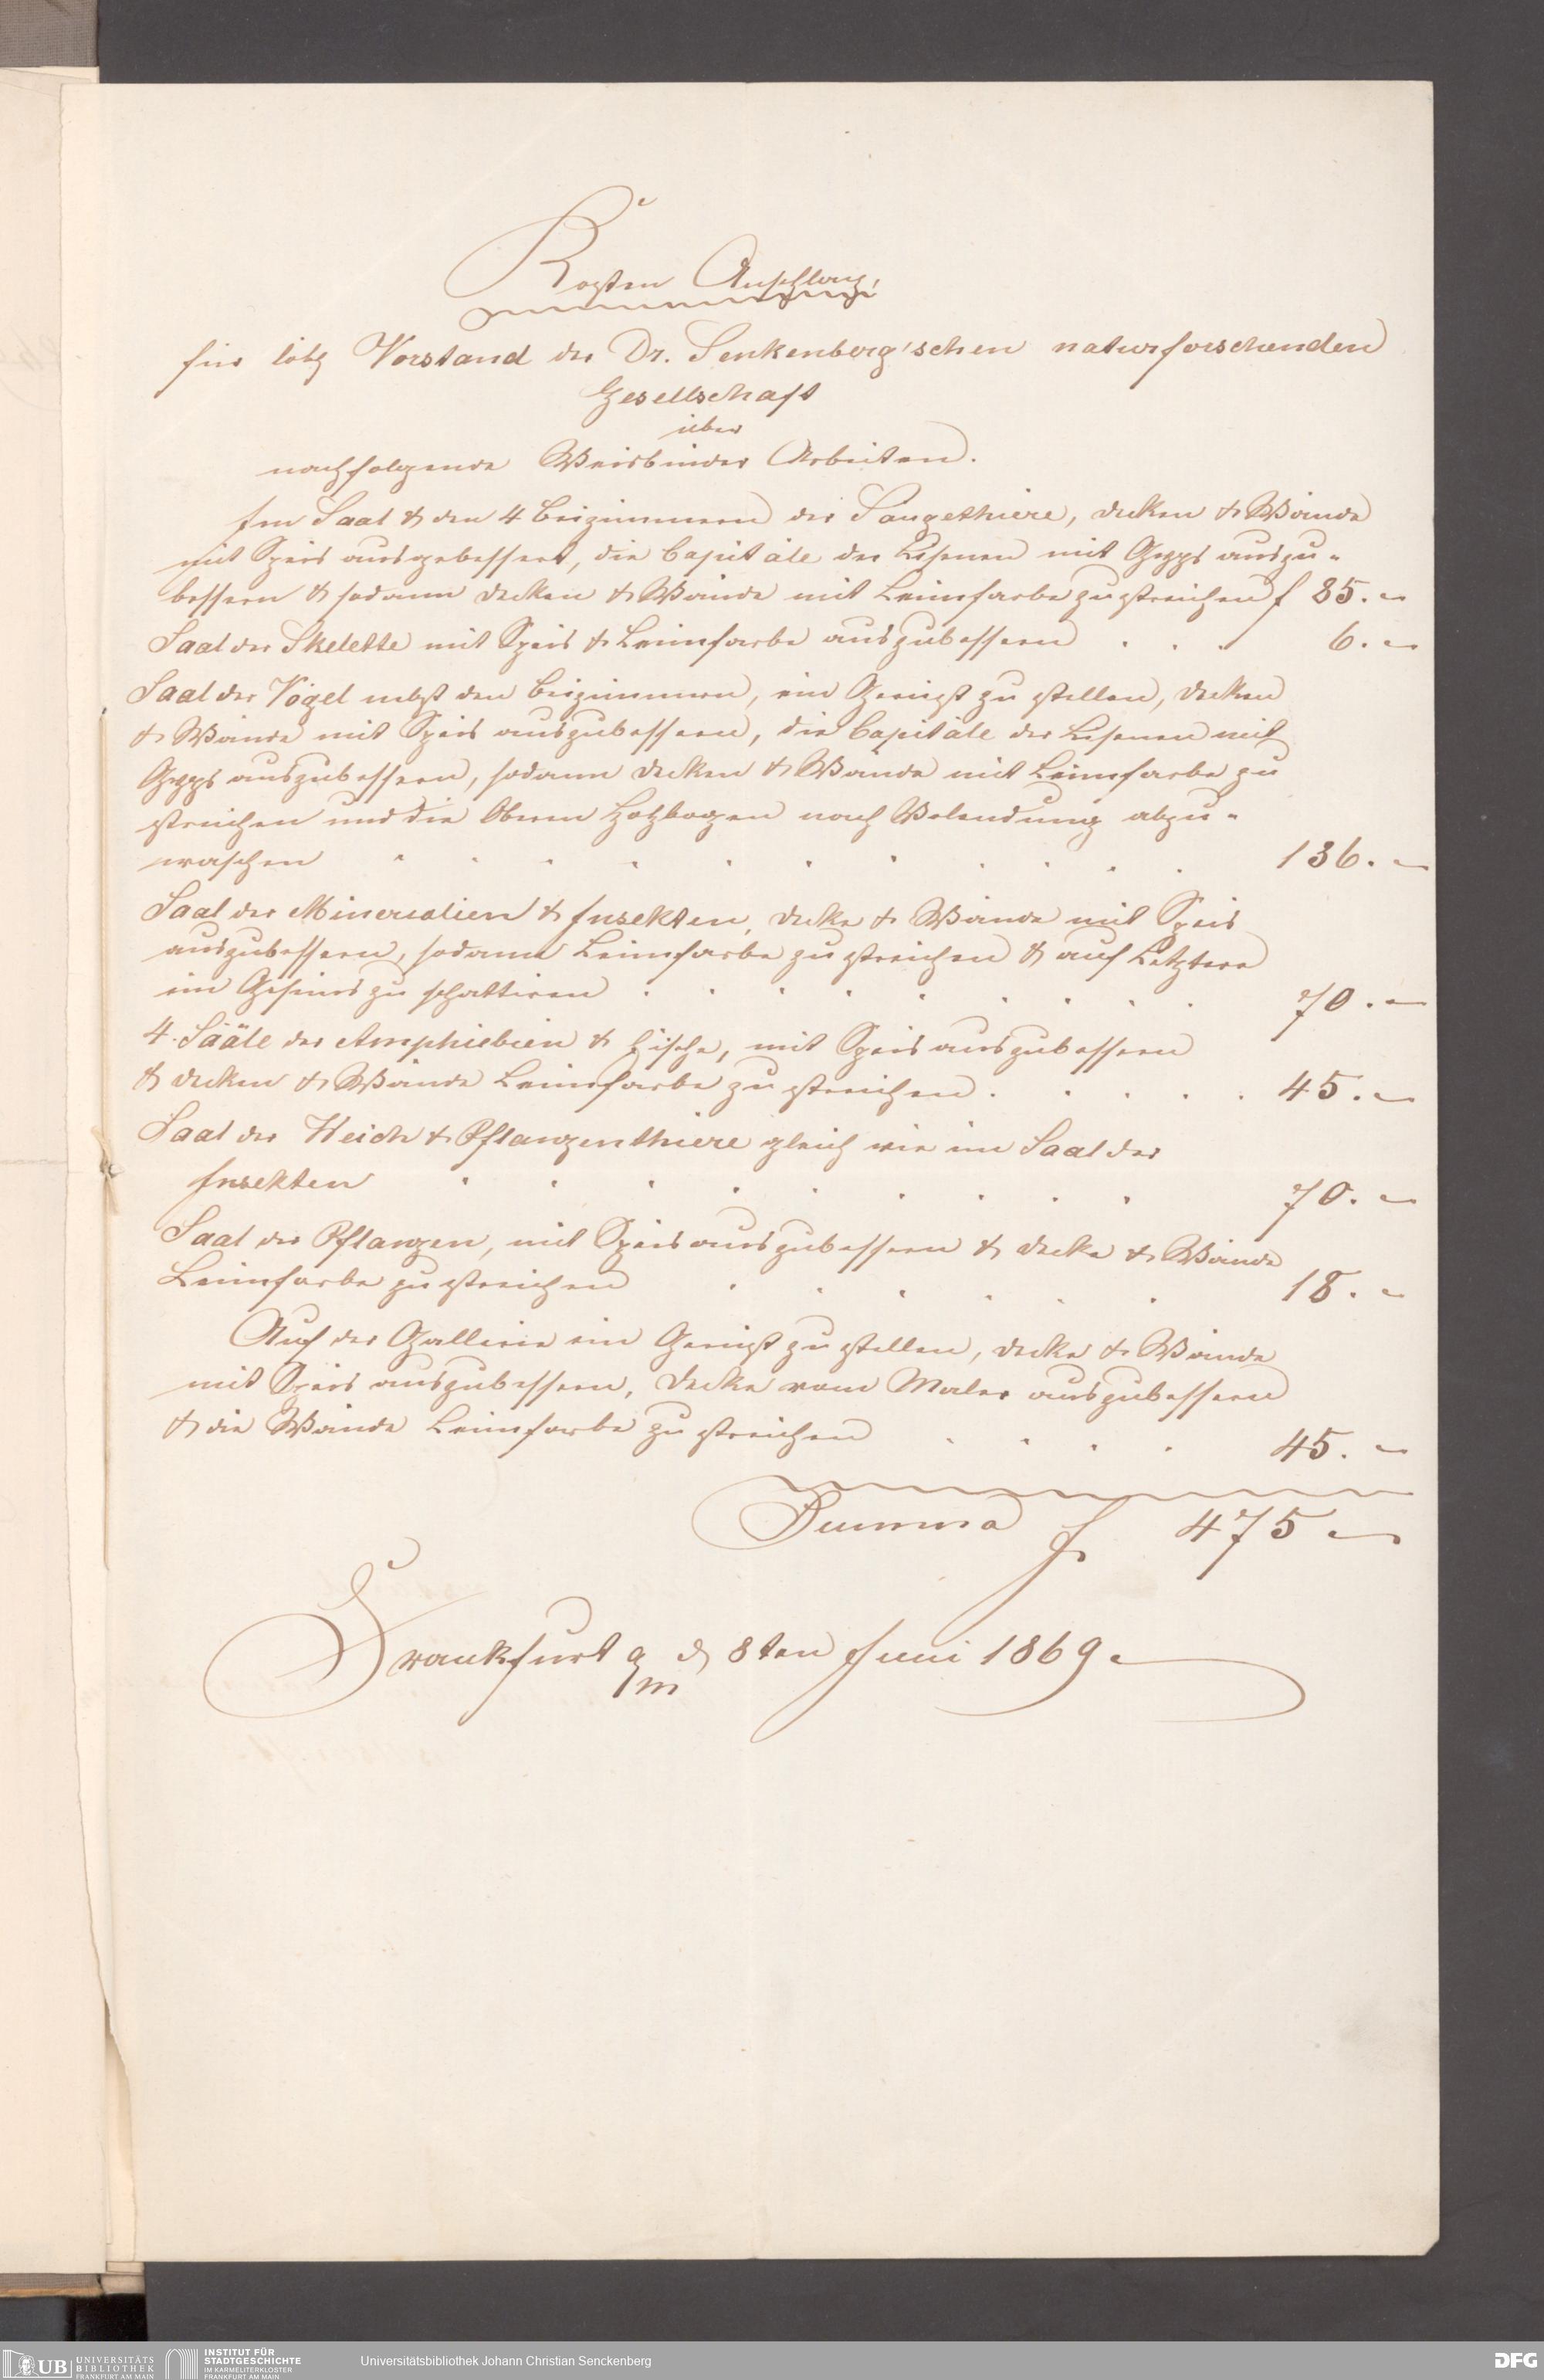 Kosten Anschlag,
für löbl Vorstand der Dr. Senkenberg'schen naturforschenden
Gesellschaft
über
nachfolgende Weisbinder Arbeiten.
Im Saal & den 4 Beizimmern der Säugethiere, Decken & Wände
mit Speis ausgebessert, die Capitäle der Lesenen mit Gyps auszu-
bessern & sodann Decken & Wände mit Leimfarbe zu streichen f 85. –
Saal der Skelette mit Speis & Leimfarbe auszubessern . . . 6. –
Saal der Vögel nebst den Beizimmern, ein Gerüst zu stellen, Decken
& Wände mit Speis auszubessern, die Capitäle der Lesenen mit
Gyps auszubessern, sodann Decken & Wände mit Leimfarbe zu
streichen und die Obern Holzbogen nach Volendung abzu-
waschen . . . . . . . . . . . 136. –
Saal der Mineralien & Insekten, Decke & Wände mit Speis
auszubessern, sodann Leimfarbe zu streichen & auf Letztere
ein Gesims zu schattiren . . . . . . . . . 70. –
4. Sääle der Amphiebien & Fische, mit Speis auszubessern
& Decken & Wände Leimfarbe zu streichen . . . . . 45. –
Saal der Weich & Pflanzenthiere gleich wie im Saal der
Insekten . . . . . . . . . 70. –
Saal der Pflanzen, mit Speis auszubessern & Decke & Wände
Leimfarbe zu streichen . . . . . . 18. –
Auf der Gallerie ein Gerüst zu stellen, Decke & Wände
mit Speis auszubessern, Decke vom Maler auszubessern
& die Wände Leimfarbe zu streichen . . . . 45. –
Summa f 475 –
Frankfurt a/m d 8ten Juni 1869.
UB UNIVERSITÄTS
BIBLIOTHEK
FRANKFURT AM MAIN
INSTITUT FÜR
STADTGESCHICHTE
IM KARMELITERKLOSTER
FRANKFURT AM MAIN
Universitätsbibliothek Johann Christian Senckenberg
DFG